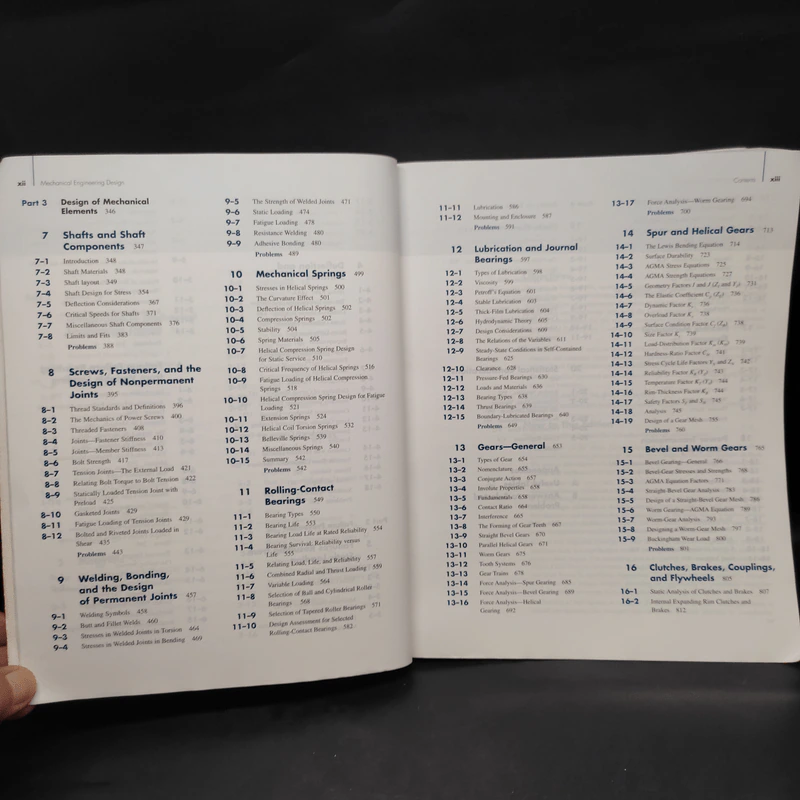 xii
Mechanical Engineering Design
Part 3 Design of Mechanical
Elements 346
7 Shafts and Shaft
Components 347
7–1 Introduction 348
7–2 Shaft Materials 348
7–3 Shaft layout 349
7–4 Shaft Design for Stress 354
7–5 Deflection Considerations 367
7–6 Critical Speeds for Shafts 371
7–7 Miscellaneous Shaft Components 376
7–8 Limits and Fits 383
Problems 388
8 Screws, Fasteners, and the
Design of Nonpermanent
Joints 395
8–1 Thread Standards and Definitions 396
8–2 The Mechanics of Power Screws 400
8–3 Threaded Fasteners 408
8–4 Joints—Fastener Stiffness 410
8–5 Joints—Member Stiffness 413
8–6 Bolt Strength 417
8–7 Tension Joints—The External Load 421
8–8 Relating Bolt Torque to Bolt Tension 422
8–9 Statically Loaded Tension Joint with
Preload 425
8–10 Gasketed Joints 429
8–11 Fatigue Loading of Tension Joints 429
8–12 Bolted and Riveted Joints Loaded in
Shear 435
Problems 443
9 Welding, Bonding,
and the Design
of Permanent Joints 457
9–1 Welding Symbols 458
9–2 Butt and Fillet Welds 460
9–3 Stresses in Welded Joints in Torsion 464
9–4 Stresses in Welded Joints in Bending 469
9–5 The Strength of Welded Joints 471
9–6 Static Loading 474
9–7 Fatigue Loading 478
9–8 Resistance Welding 480
9–9 Adhesive Bonding 480
Problems 489
10 Mechanical Springs 499
10–1 Stresses in Helical Springs 500
10–2 The Curvature Effect 501
10–3 Deflection of Helical Springs 502
10–4 Compression Springs 502
10–5 Stability 504
10–6 Spring Materials 505
10–7 Helical Compression Spring Design
for Static Service 510
10–8 Critical Frequency of Helical Springs 516
10–9 Fatigue Loading of Helical Compression
Springs 518
10–10 Helical Compression Spring Design for Fatigue
Loading 521
10–11 Extension Springs 524
10–12 Helical Coil Torsion Springs 532
10–13 Belleville Springs 539
10–14 Miscellaneous Springs 540
10–15 Summary 542
Problems 542
11 Rolling-Contact
Bearings 549
11–1 Bearing Types 550
11–2 Bearing Life 553
11–3 Bearing Load Life at Rated Reliability 554
11–4 Bearing Survival: Reliability versus
Life 555
11–5 Relating Load, Life, and Reliability 557
11–6 Combined Radial and Thrust Loading 559
11–7 Variable Loading 564
11–8 Selection of Ball and Cylindrical Roller
Bearings 568
11–9 Selection of Tapered Roller Bearings 571
11–10 Design Assessment for Selected
Rolling-Contact Bearings 582
Contents
xiii
11–11 Lubrication 586
11–12 Mounting and Enclosure 587
Problems 591
12 Lubrication and Journal
Bearings 597
12–1 Types of Lubrication 598
12–2 Viscosity 599
12–3 Petroff's Equation 601
12–4 Stable Lubrication 603
12–5 Thick-Film Lubrication 604
12–6 Hydrodynamic Theory 605
12–7 Design Considerations 609
12–8 The Relations of the Variables 611
12–9 Steady-State Conditions in Self-Contained
Bearings 625
12–10 Clearance 628
12–11 Pressure-Fed Bearings 630
12–12 Loads and Materials 636
12–13 Bearing Types 638
12–14 Thrust Bearings 639
12–15 Boundary-Lubricated Bearings 640
Problems 649
13 Gears—General 653
13–1 Types of Gear 654
13–2 Nomenclature 655
13–3 Conjugate Action 657
13–4 Involute Properties 658
13–5 Fundamentals 658
13–6 Contact Ratio 664
13–7 Interference 665
13–8 The Forming of Gear Teeth 667
13–9 Straight Bevel Gears 670
13–10 Parallel Helical Gears 671
13–11 Worm Gears 675
13–12 Tooth Systems 676
13–13 Gear Trains 678
13–14 Force Analysis—Spur Gearing 685
13–15 Force Analysis—Bevel Gearing 689
13–16 Force Analysis—Helical
Gearing 692
13–17 Force Analysis—Worm Gearing 694
Problems 700
14 Spur and Helical Gears 713
14–1 The Lewis Bending Equation 714
14–2 Surface Durability 723
14–3 AGMA Stress Equations 725
14–4 AGMA Strength Equations 727
14–5 Geometry Factors I and J (Z_I and Y_J) 731
14–6 The Elastic Coefficient C_p (Z_E) 736
14–7 Dynamic Factor K_v 736
14–8 Overload Factor K_o 738
14–9 Surface Condition Factor C_f (Z_R) 738
14–10 Size Factor K_s 739
14–11 Load-Distribution Factor K_m (K_H) 739
14–12 Hardness-Ratio Factor C_H 741
14–13 Stress Cycle Life Factors Y_N and Z_N 742
14–14 Reliability Factor K_R (Y_Z) 743
14–15 Temperature Factor K_T (Y_θ) 744
14–16 Rim-Thickness Factor K_B 744
14–17 Safety Factors S_F and S_H 745
14–18 Analysis 745
14–19 Design of a Gear Mesh 755
Problems 760
15 Bevel and Worm Gears 765
15–1 Bevel Gearing—General 766
15–2 Bevel-Gear Stresses and Strengths 768
15–3 AGMA Equation Factors 771
15–4 Straight-Bevel Gear Analysis 783
15–5 Design of a Straight-Bevel Gear Mesh 786
15–6 Worm Gearing—AGMA Equation 789
15–7 Worm-Gear Analysis 793
15–8 Designing a Worm-Gear Mesh 797
15–9 Buckingham Wear Load 800
Problems 801
16 Clutches, Brakes, Couplings,
and Flywheels 805
16–1 Static Analysis of Clutches and Brakes 807
16–2 Internal Expanding Rim Clutches and
Brakes 812